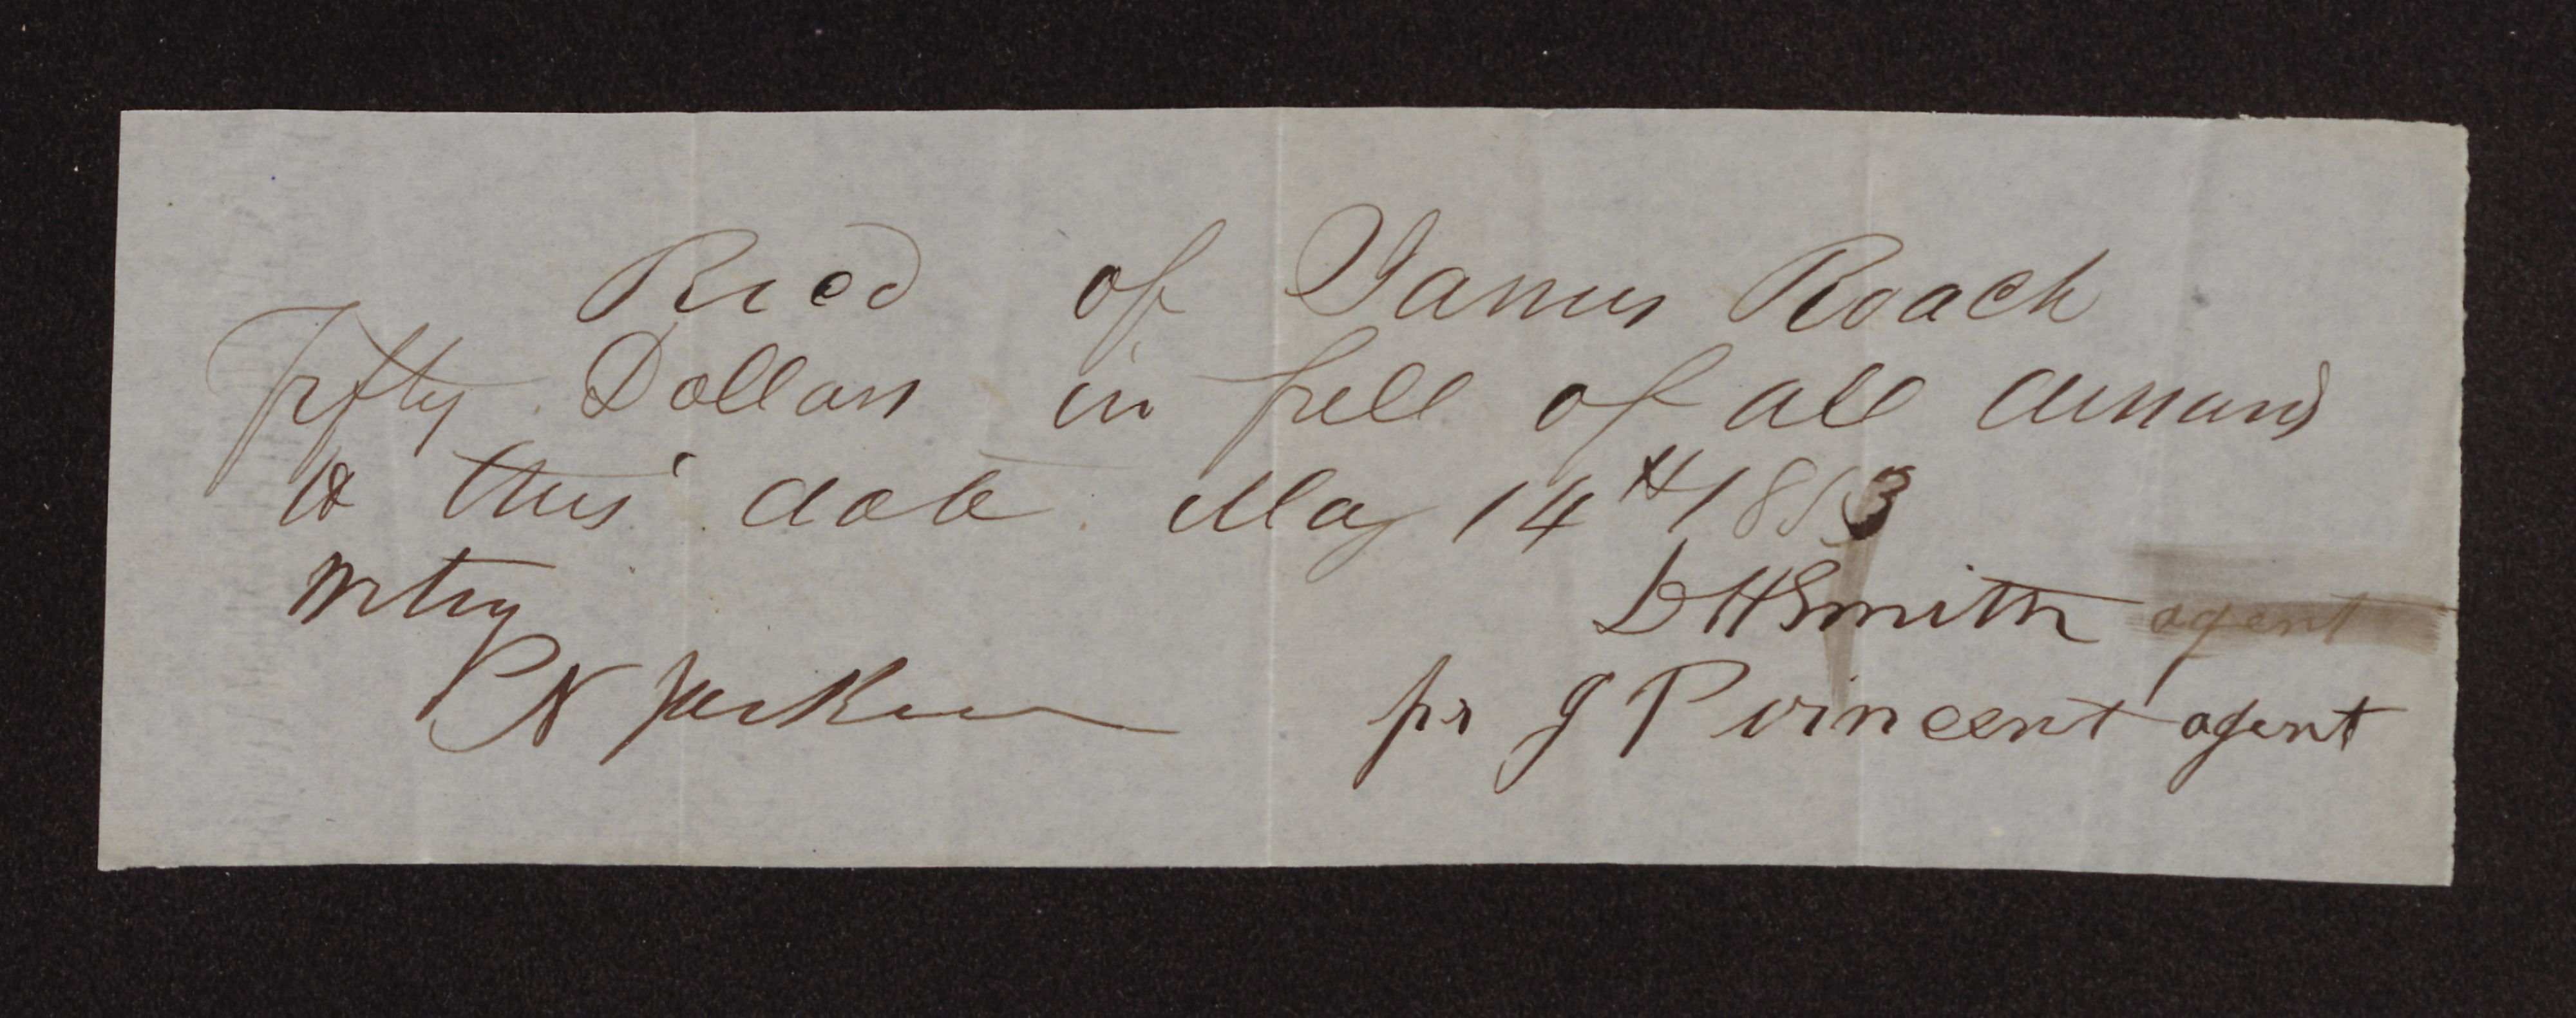 Recd of James Roach
Fifty Dollars in full of all demand
to this date May 14th 1853
D H Smith agent
pr J P vincent agent
N Jackson